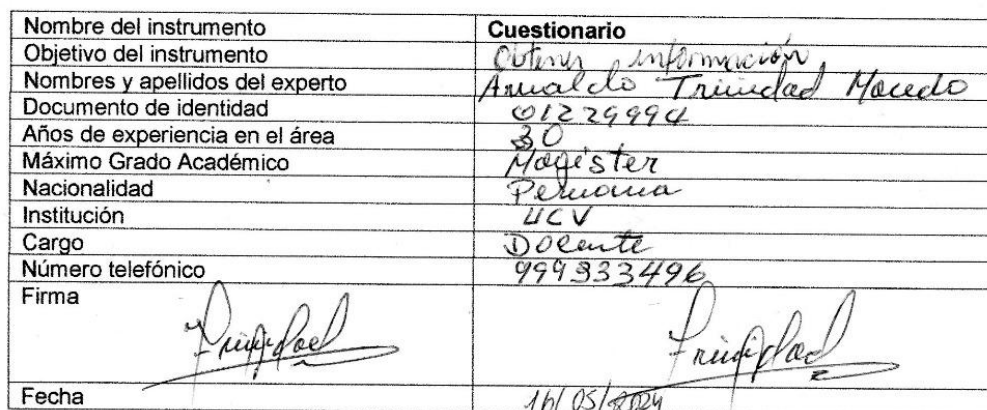 Nombre del instrumento Cuestionario
Objetivo del instrumento Obtener información
Nombres y apellidos del experto Arnaldo Trinidad Macedo
Documento de identidad 01229994
Años de experiencia en el área 30
Máximo Grado Académico Magister
Nacionalidad Peruana
Institución UCV
Cargo Docente
Número telefónico 999333496
Firma Trinidad Trinidad
Fecha 16/05/2024